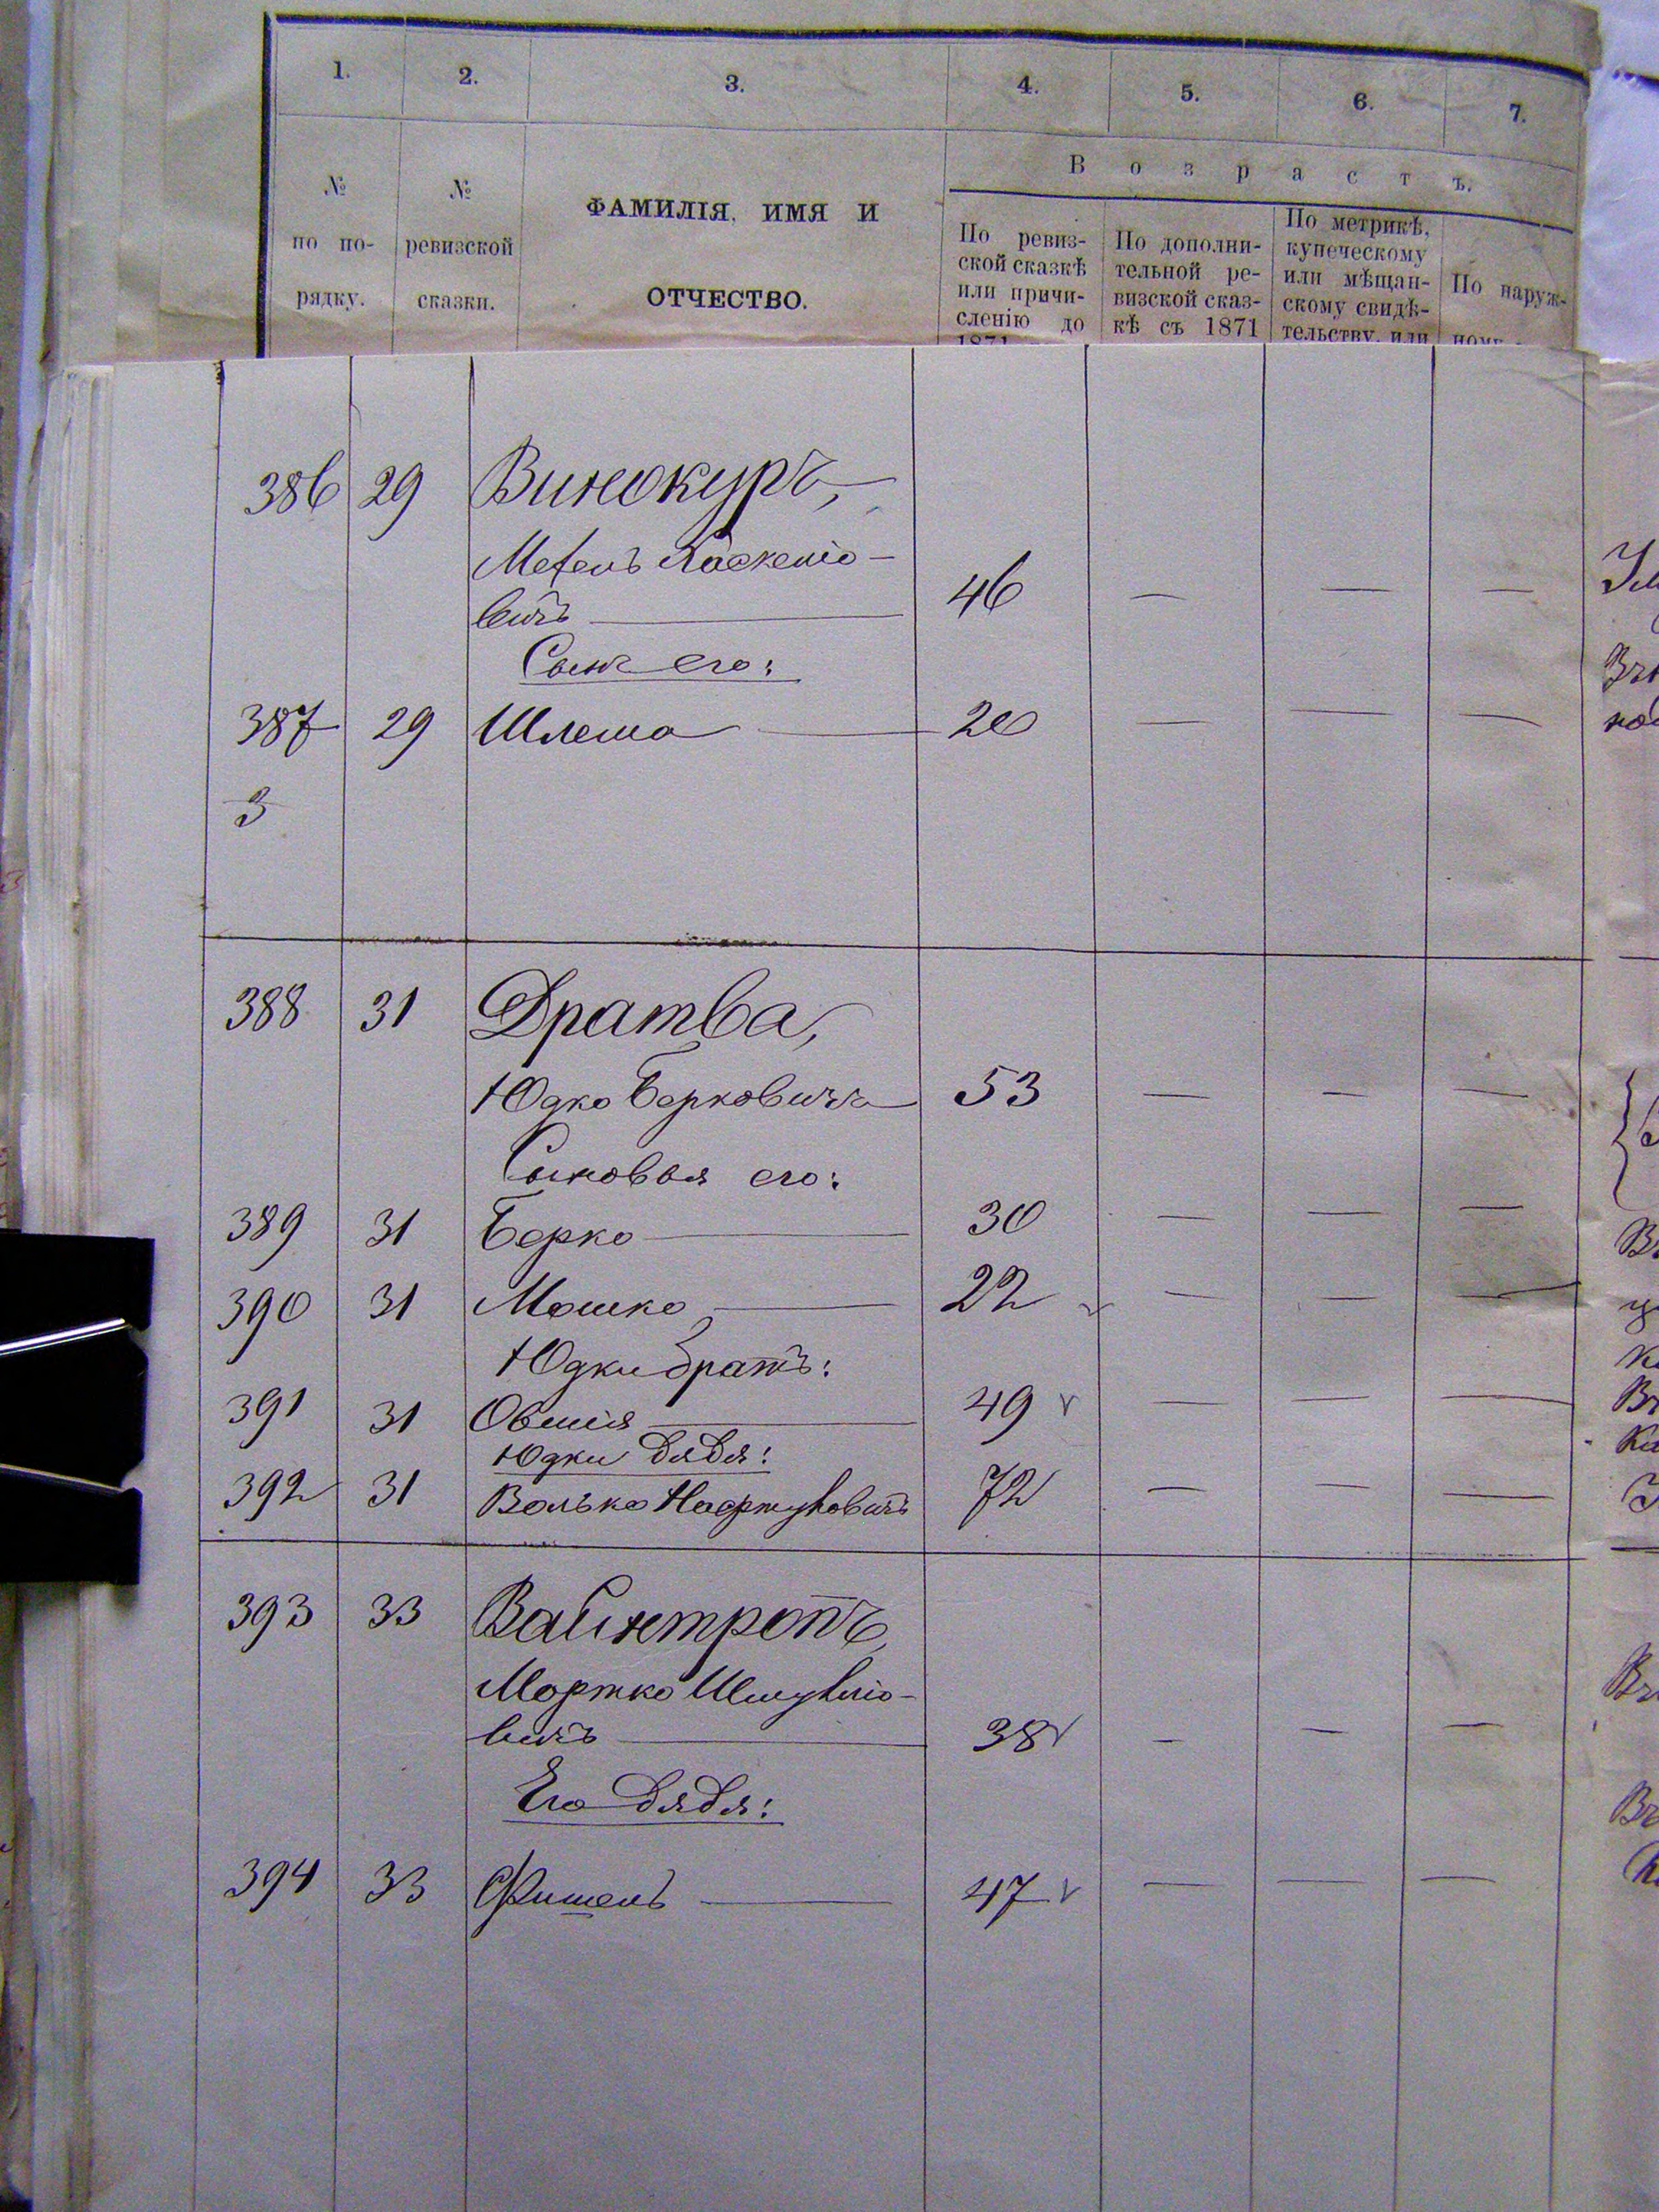 1. 2. 3. 4. 5. 6. 7.
В о з р а с т ъ.
№ по по- рядку.
№ ревизской сказки.
ФАМИЛІЯ, ИМЯ И
ОТЧЕСТВО.
По ревиз-
ской сказкѣ
или причи-
сленію до
1871
По дополни-
тельной ре-
визской сказ-
кѣ съ 1871
По метрикѣ,
купеческому
или мѣщан-
скому свидѣ-
тельству, или
По наруж-
386 29 Винокуръ,
46 — — —
вичъ
Сынъ его:
387 29 Шлема — 20 — — —
3
388 31 Дратва,
Юдко Берковичъ 53 — — —
Сыновья его:
389 31 Берко — 30 — — —
390 31 Мошко — 22 — — —
Юдки братъ:
391 31 Овшія — 49 — — —
Юдки дядя:
392 31 Волько 72 — — —
393 33 Вайнтротъ,
Мортко Шмуйліо-
вичъ — 38 — — —
Его дядя:
394 33 Фишель — 47 — — —